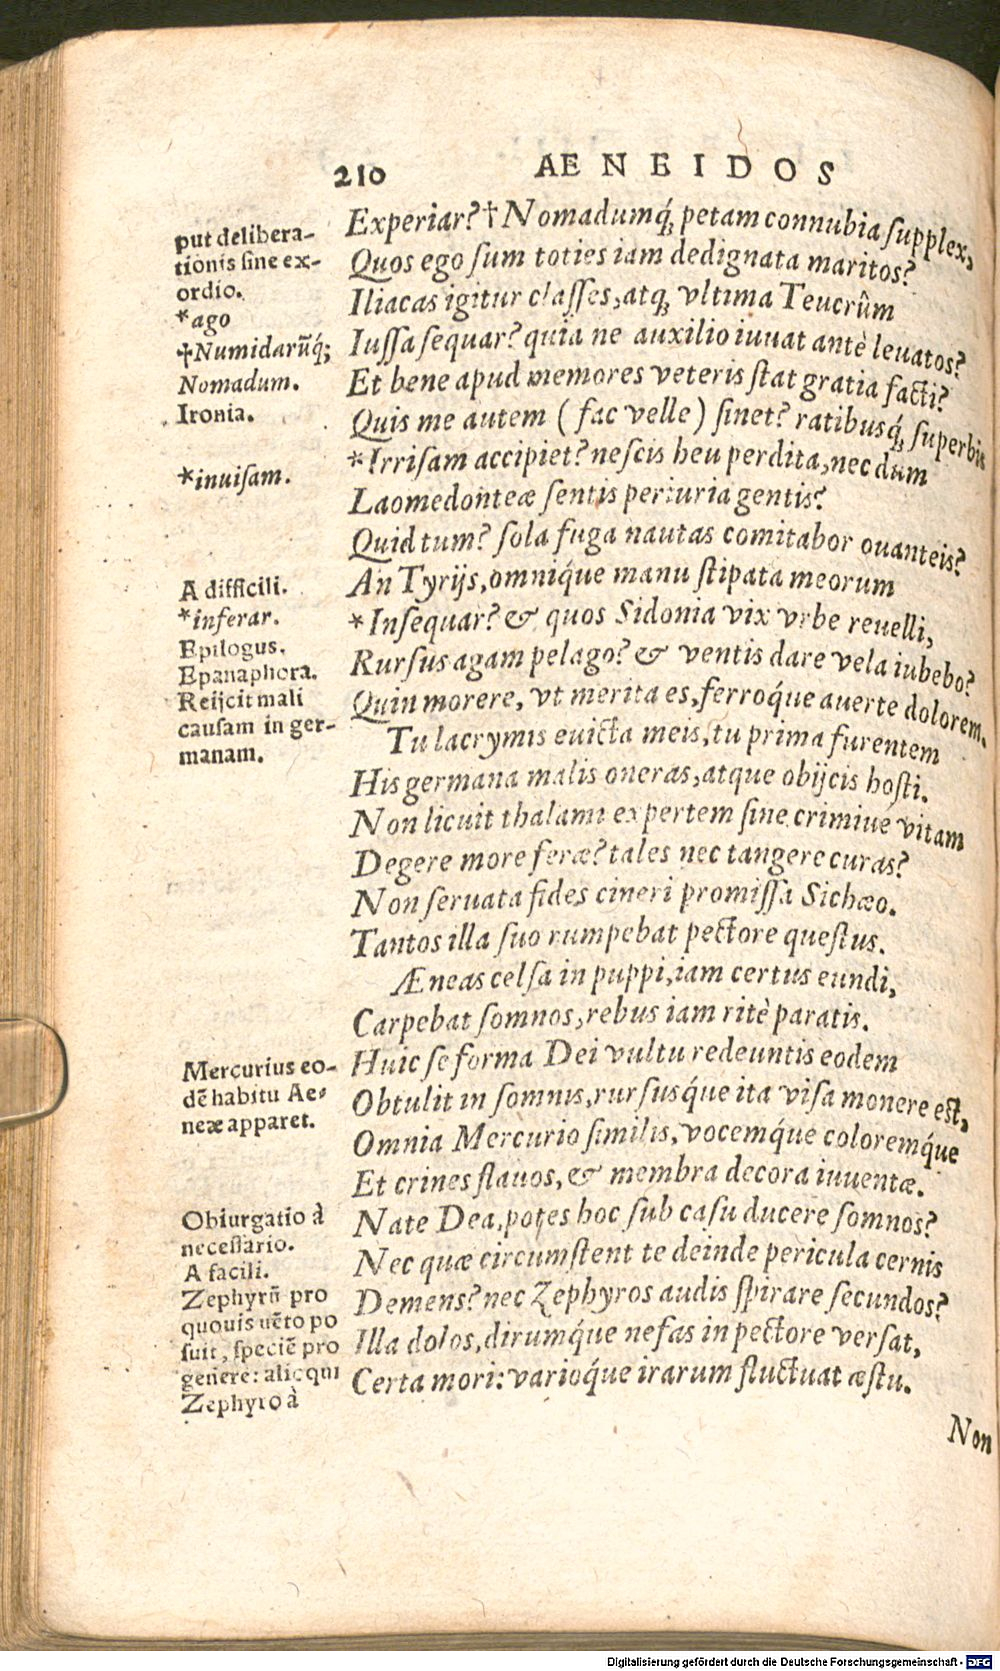 210 AENEIDOS
put delibera-
tionis sine ex-
ordio.
*ago
†Numidarũq́;
Nomadum.
Ironia.
*inuisam.
A difficili.
*inferar.
Epilogus.
Epanaphora.
Reijcit mali
causam in ger-
manam.
Mercurius eo-
dẽ habitu Ae-
neæ apparet.
Obiurgatio à
necessario.
A facili.
Zephyrũ pro
quouis uẽto po
suit, speciẽ pro
genere: alioqui
Zephyro à
Experiar? †Nomadumq́; petam connubia supplex,
Quos ego sum toties iam dedignata maritos?
Iliacas igitur classes, atq; vltima Teucrûm
Iussa sequar? quia ne auxilio iuuat antè leuatos?
Et bene apud memores veteris stat gratia facti?
Quis me autem (fac velle) sinet? ratibusq́; superbis
*Irrisam accipiet? nescis heu perdita, nec dum
Laomedonteæ sentis periuria gentis?
Quid tum? sola fuga nautas comitabor ouanteis?
An Tyrijs, omniq́ue manu stipata meorum
*Insequar? & quos Sidonia vix vrbe reuelli,
Rursus agam pelago? & ventis dare vela iubebo?
Quin morere, vt merita es, ferroq́ue auerte dolorem.
Tu lacrymis euicta meis, tu prima furentem
His germana malis oneras, atque obijcis hosti.
Non licuit thalami expertem sine crimiue vitam
Degere more feræ? tales nec tangere curas?
Non seruata fides cineri promissa Sichæo.
Tantos illa suo rumpebat pectore questus.
Æneas celsa in puppi, iam certus eundi,
Carpebat somnos, rebus iam ritè paratis.
Huic se forma Dei vultu redeuntis eodem
Obtulit in somnis, rursusq́ue ita visa monere est,
Omnia Mercurio similis, vocemq́ue coloremq́ue
Et crines flauos, & membra decora iuuentæ.
Nate Dea, potes hoc sub casu ducere somnos?
Nec quæ circumstent te deinde pericula cernis
Demens? nec Zephyros audis spirare secundos?
Illa dolos, dirumq́ue nefas in pectore versat,
Certa mori: varioq́ue irarum fluctuat æstu.
Non
Digitalisierung gefördert durch die Deutsche Forschungsgemeinschaft - DFG